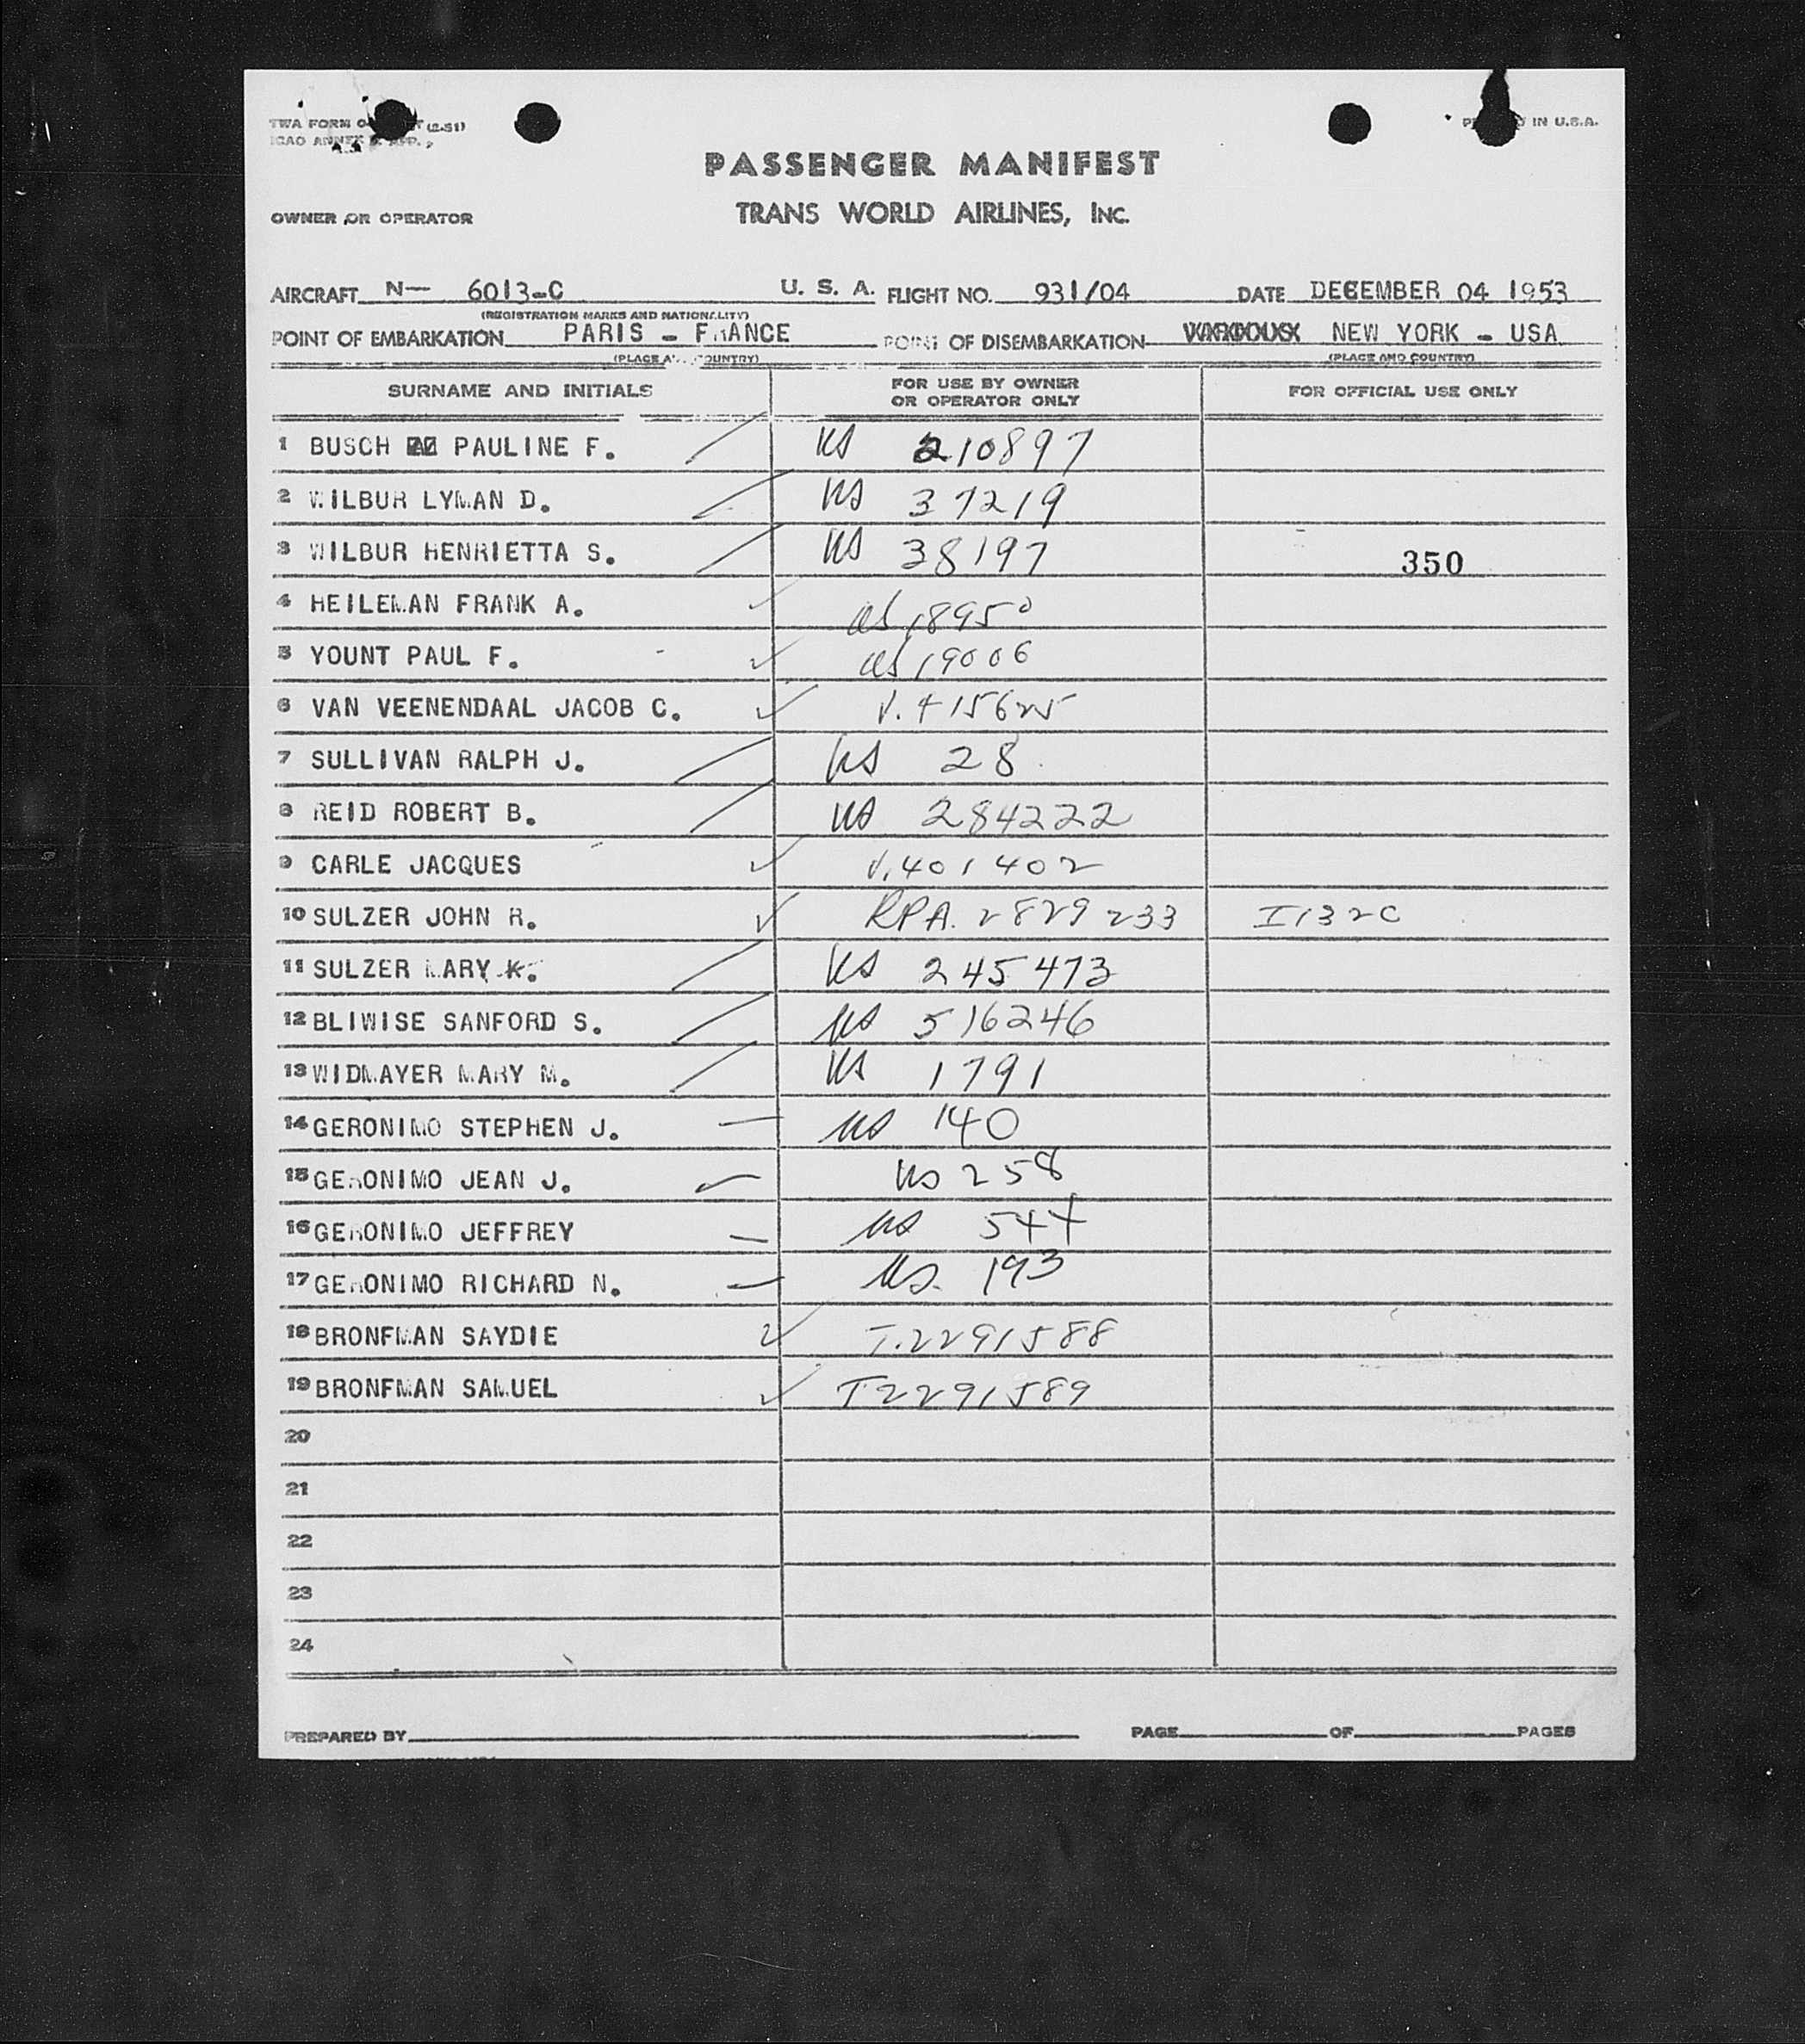 TWA FORM O (2-51)
PRINTED IN U.S.A.
ICAO ANNEX 9. APP.
PASSENGER MANIFEST
OWNER OR OPERATOR TRANS WORLD AIRLINES, INC.
AIRCRAFT N— 6013-C U. S. A. FLIGHT NO. 931/04 DATE DECEMBER 04 1953
(REGISTRATION MARKS AND NATIONALITY)
POINT OF EMBARKATION PARIS - FRANCE POINT OF DISEMBARKATION NEW YORK - USA
(PLACE AND COUNTRY) (PLACE AND COUNTRY)
SURNAME AND INITIALS FOR USE BY OWNER OR OPERATOR ONLY FOR OFFICIAL USE ONLY
1 BUSCH PAULINE F. US 210897
2 WILBUR LYMAN D. US 37219
3 WILBUR HENRIETTA S. US 38197 350
4 HEILEMAN FRANK A. US 18950
5 YOUNT PAUL F. US 19006
6 VAN VEENENDAAL JACOB C. V. 415625
7 SULLIVAN RALPH J. US 28
8 REID ROBERT B. US 284222
9 CARLE JACQUES V. 401402
10 SULZER JOHN R. RPA. 2829233 I132C
11 SULZER MARY K. US 245473
12 BLIWISE SANFORD S. US 516246
13 WIDMAYER MARY M. US 1791
14 GERONIMO STEPHEN J. US 140
15 GERONIMO JEAN J. US 258
16 GERONIMO JEFFREY US 544
17 GERONIMO RICHARD N. US. 193
18 BRONFMAN SAYDIE T.2291588
19 BRONFMAN SAMUEL T2291589
20
21
22
23
24
PREPARED BY PAGE OF PAGES